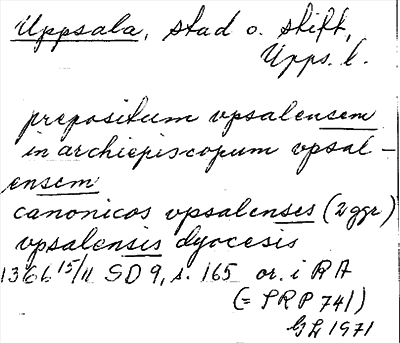 Uppsala, stad o. stift,
Upps. l.
prepositum vpsalensem
in archiepiscopum vpsal-
ensem
canonicos vpsalenses (2 ggr)
vpsalensis dyocesis
1366 15/11 SD 9, s. 165 or. i RA
(= SRP 741)
GL 1971